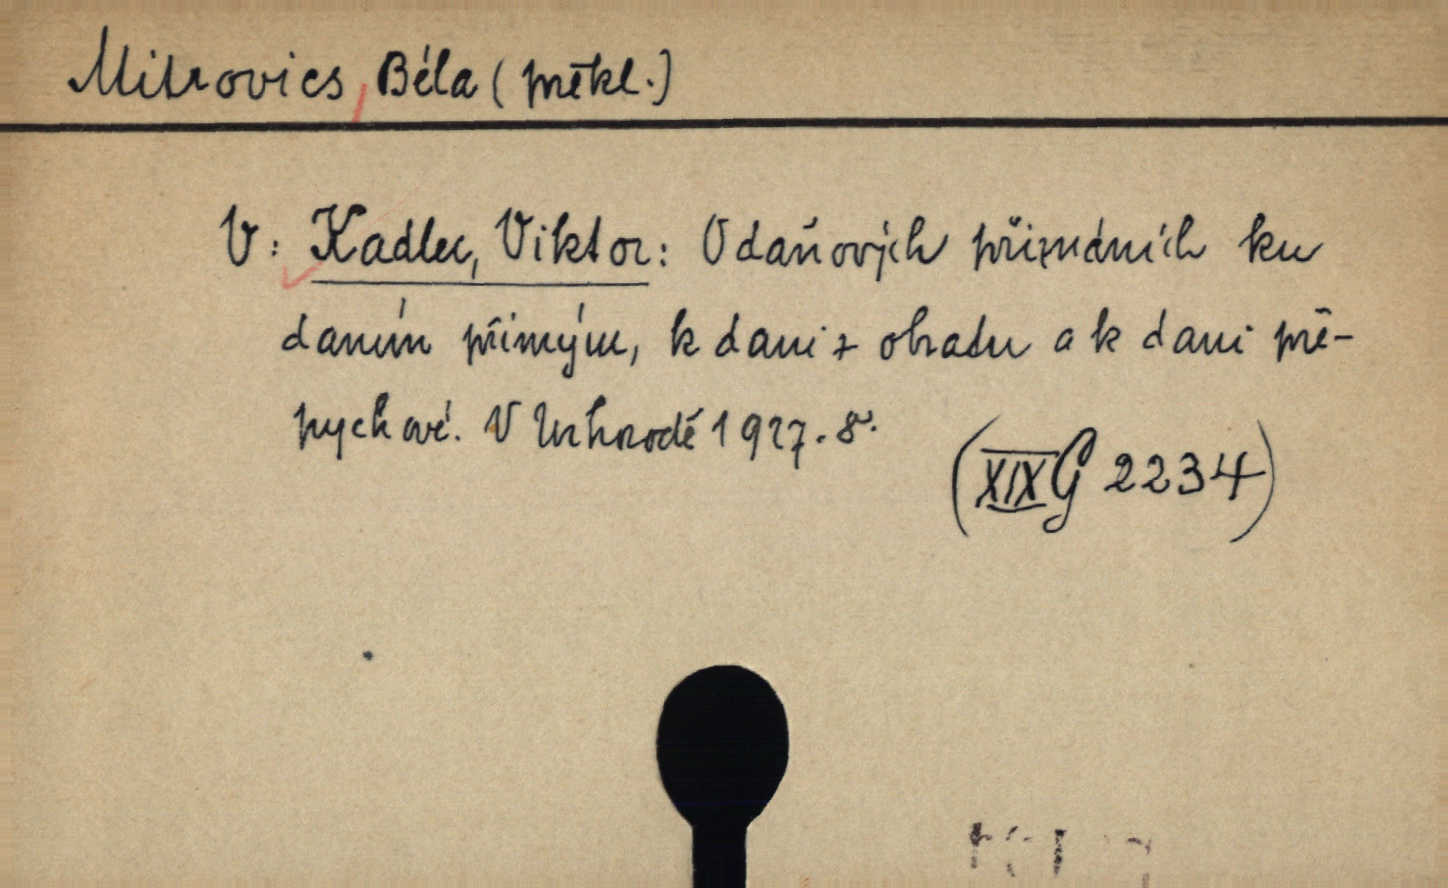 Mitrovics, Béla (překl.)
V: Kadlec, Viktor: O daňových přiznáních ku
daním přímým, k dani z obratu a k dani pře-
pychové. V Užhorodě 1927. 8°.
(XIX G 2234)